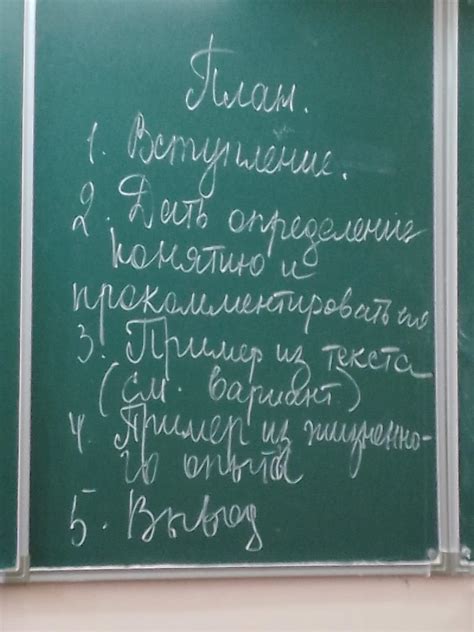 План.
1. Вступление.
2. Дать определение
понятию и
прокомментировать его
3. Пример из текста
(см. вариант)
4. Пример из жизненно-
го опыта
5. Вывод